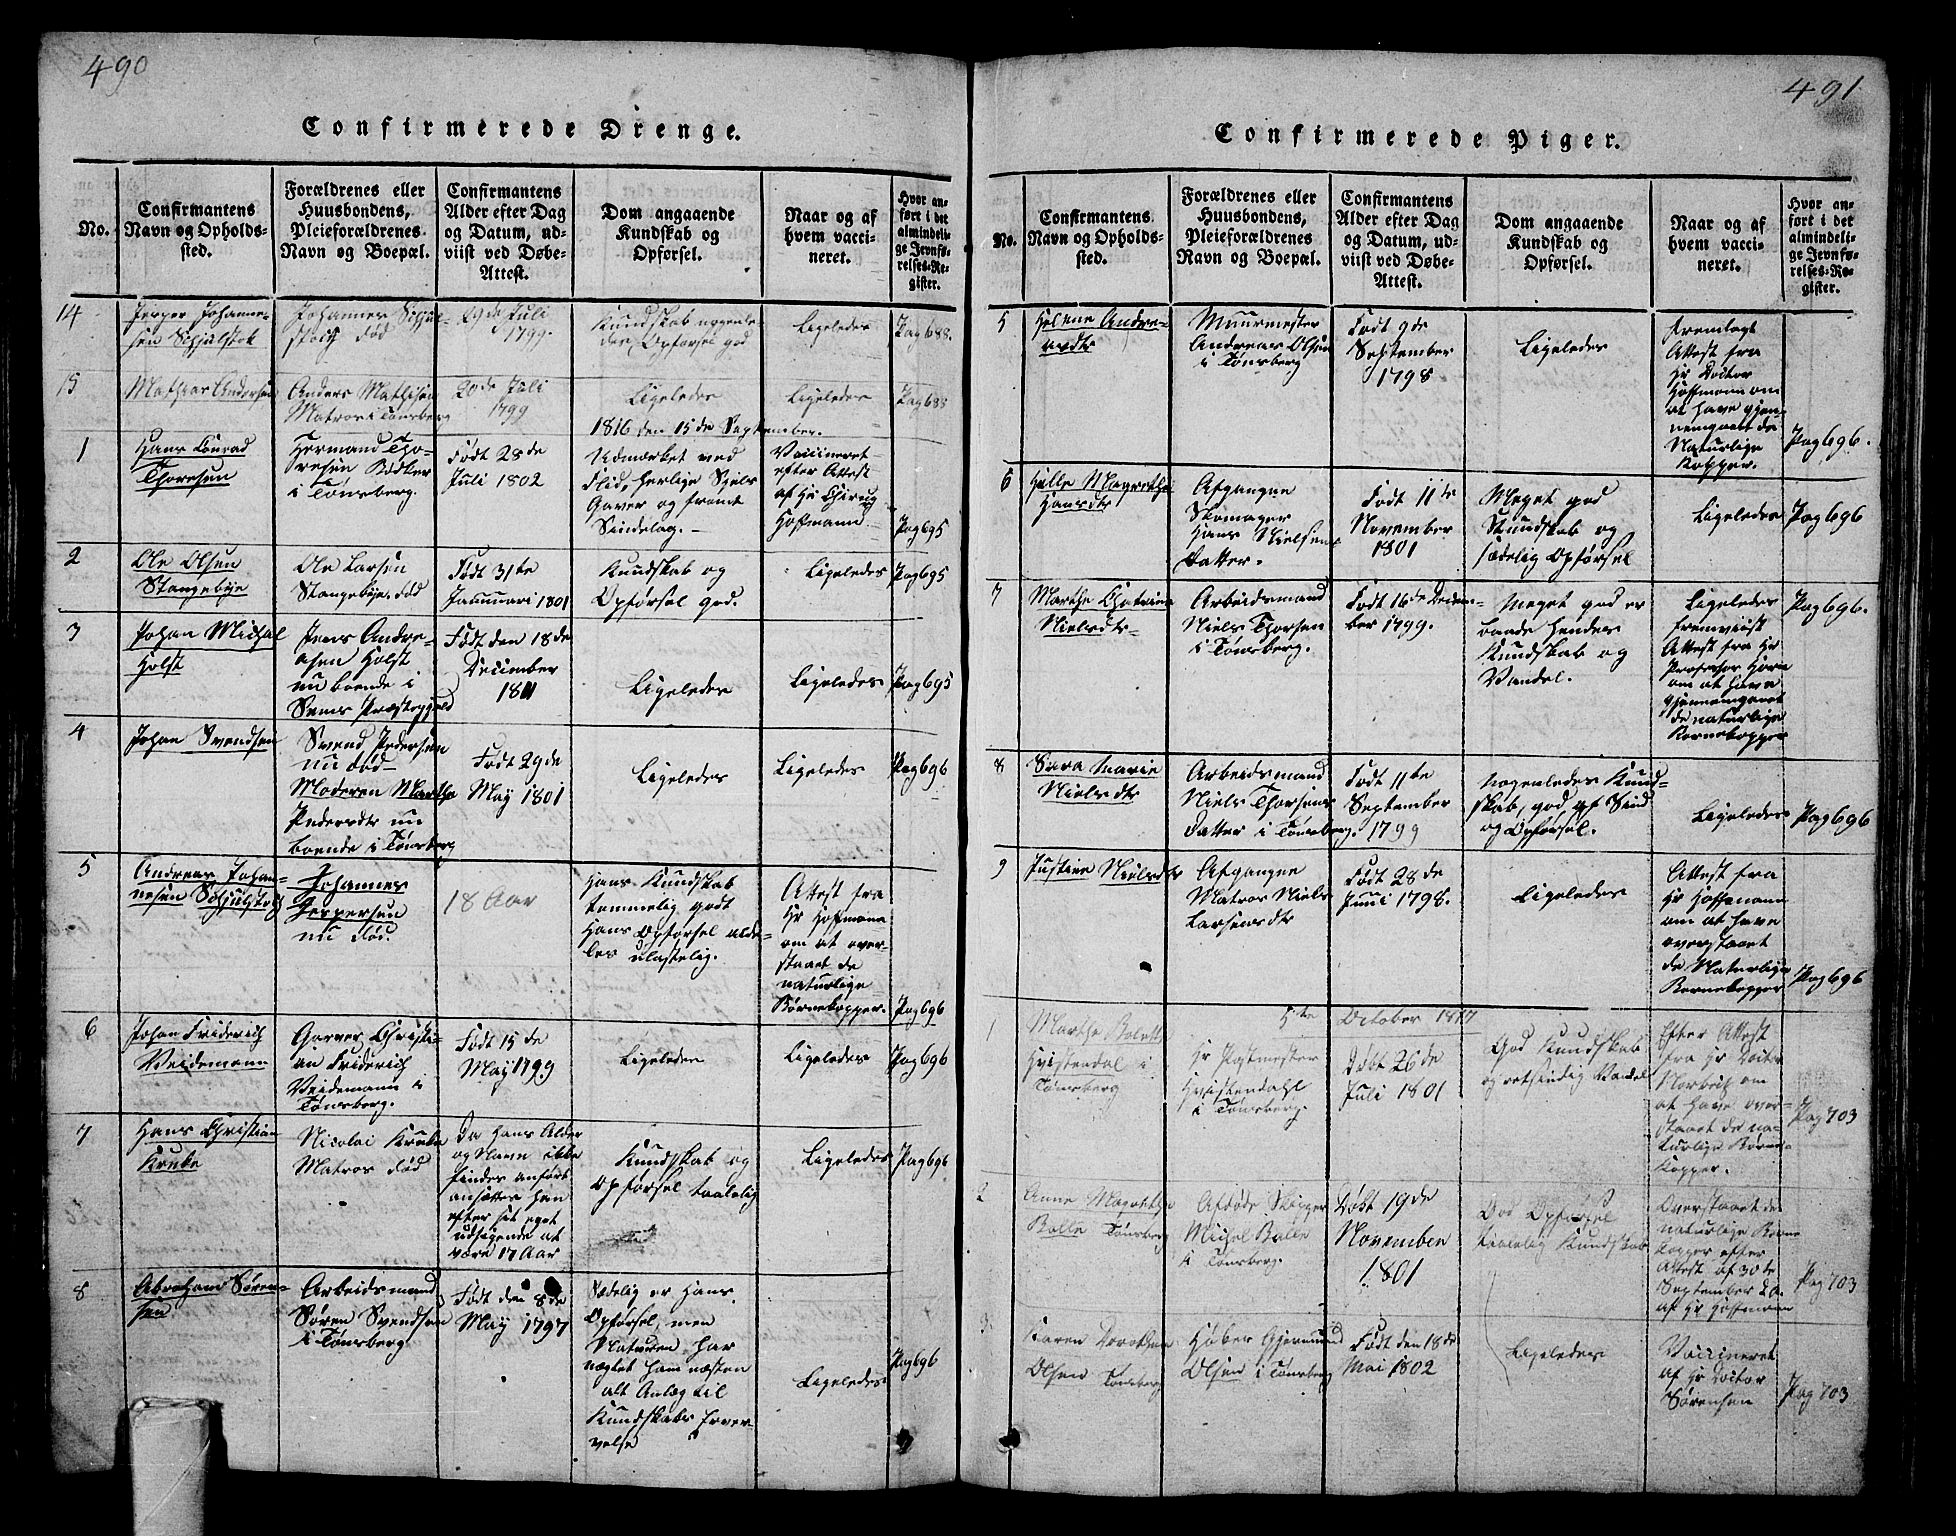 490
Confirmerede Drenge.
No.
Confirmantens
Navn og Opholds-
sted.
Forældrenes eller
Huusbondens,
Pleieforældrenes
Navn og Boepæl.
Confirmantens
Alder efter Dag
og Datum, ud-
viist ved Døbe-
Attest.
Dom angaaende
Kundskab og
Opførsel.
Naar og af
hvem vacci-
neret.
Hvor an-
ført i det
almindeli-
ge Jevnfø-
relses-Re-
gister.
14
Jesper Johanne-
sen Schjulstok
Johannes Schjul-
stok død
29de Juli
1799.
Kundskab nogenle-
des, Opførsel god
Ligeledes
Pag 688.
15
Mathias Andersen
Anders Mathisen
Matros i Tönsberg
20de Juli
1799
Ligeledes
Ligeledes
Pag 688
1816 den 15de September.
1
Hans Conrad
Thoresen
Hermand Tho-
resen Bødker
i Tönsberg.
Født 28de
Juli 1802
Udmærket ved
Flid, herlige Sjels
Gaver og fromt
Sindelag.-
Vaccineret
efter Attest
af Hr Chirurg
Hoffmann.
Pag 695
2
Ole Olsen
Stangebÿe
Ole Larsen
Stangebÿe. død
Født 31te
Januari 1801
Kundskab og
Opførsel god.
Ligeledes
Pag 695
3
Johan Michal
Holst
Jens Andre-
asen Holst
nu boende i
Sems Præstegjeld
Født den 18de
December
1801
Ligeledes
Ligeledes
Pag 695
4
Johan Svendsen
Svend Pedersen
nu død-
Moderen Marthe
Pedersdtr nu
boende i Tönsberg
Født 29de
May 1801
Ligeledes
Ligeledes
Pag 696
5
Andreas Johan-
nesen Schjulstok
Johannes
Jespersen
nu død.
18 Aar
Hans Kundskab
temmelig godt
Hans Opførsel alde-
les ulastelig.
Attest fra
Hr Hoffmann
om at over-
staaet de
naturlige
Børnekopper.
Pag 696
6
Johan Friderich
Veidemann
Garver Christi-
an Friderich
Veidemann i
Tönsberg.
Født 15de
May 1799
Ligeledes
Ligeledes
Pag 696
7
Hans Christian
Kruke
Nicolai Kruke
Matros død
Da Hans Alder
og Navn ikke
findes anført
ansættes han
efter sit eget
udsigende at
være 17 Aar
Kundskab og
Opførsel taalelig
Ligeledes
Pag 696
8
Abraham Sören-
sen
Arbeidsmand
Sören Svendsen
i Tönsberg
Født den 8de
May 1797
Sædelig er Hans
Opførsel, men
Naturen har
nægtet ham næsten
alt Anlæg til
Kundskabs Erver-
velse
Ligeledes
Pag 696
491
Confirmerede Piger.
No.
Confirmantens
Navn og Opholds-
sted.
Forældrenes eller
Huusbondens,
Pleieforældrenes
Navn og Boepæl.
Confirmantens
Alder efter Dag
og Datum, ud-
viist ved Døbe-
Attest.
Dom angaaende
Kundskab og
Opførsel.
Naar og af
hvem vacci-
neret.
Hvor an-
ført i det
almindeli-
ge Jevnfø-
relses-Re-
gister.
5
Helene Andre-
asdtr
Muurmester
Andreas Olsen
i Tönsberg
Født 9de
September
1798
Ligeledes
fremlagt
Attest fra
Hr Doctor
Hoffmann om
at have gjen-
nemgaaet de
Naturlige
Kopper.
Pag 696.
6
Helle Magrethe
Hansdtr
Afgangne
Skomager
Hans Nielsens
Datter.
Født 11te
November
1801
Meget god
Kundskab og
sædelig Opførsel
Ligeledes
Pag 696
7
Marthe Chatrine
Nielsdtr
Arbeidsmand
Niels Thorsen
i Tönsberg.
Født 16de Decem-
ber 1799.
Meget god er
baade Hendes
Kundskab og
Vandel.
Ligeledes
fremviist
Attest fra Hr
Professor Horn
om at have
gjennemgaaet
de naturlige
Børnekopper
Pag 696.
8
Sara Marie
Nielsdtr
Arbeidsmand
Niels Thorsens
Datter i Tönsberg.
Født 11te
September
1799
Nogenledes Kund-
skab, god af Sind
og Opførsel.
Ligeledes
Pag 696
9
Justine Nielsdtr
Afgangne
Matros Niels
Larsens dtr
Født 28de
Juni 1798.
Ligeledes
Attest fra
Hr Hoffmann
om at have
overstaaet
de Naturlige
Børnekopper
Pag 696
5te October 1817
1
Marthe Bolette
Hvistendal i
Tönsberg
Hr Postmester
Hvistendahl
i Tönsberg.
Døbt 26de
Juli 1801
God Kundskab
og retsindig Vandel
Efter Attest
fra Hr Doctor
Marbech om
at have over-
staaet de na-
turlige Børne-
Kopper.
Pag 703
2
Anne Magrethe
Balle Tönsberg
Afdöde Skipper
Michel Balle
i Tönsberg.
Døbt 19de
November
1801
God Opførsel
taalelig Kundskab
Overstaaet de
naturlige Børne
Kopper efter
Attest af 30te
September d.A.
af Hr Hoffmann
Pag 703
3
Karen Dorothea
Olsen Tönsberg
Høker Gjermund
Olsen i Tönsberg
Født den 18de
Mai 1802
Ligeledes
Vaccineret
af Hr Doctor
Sörensen
Pag 703